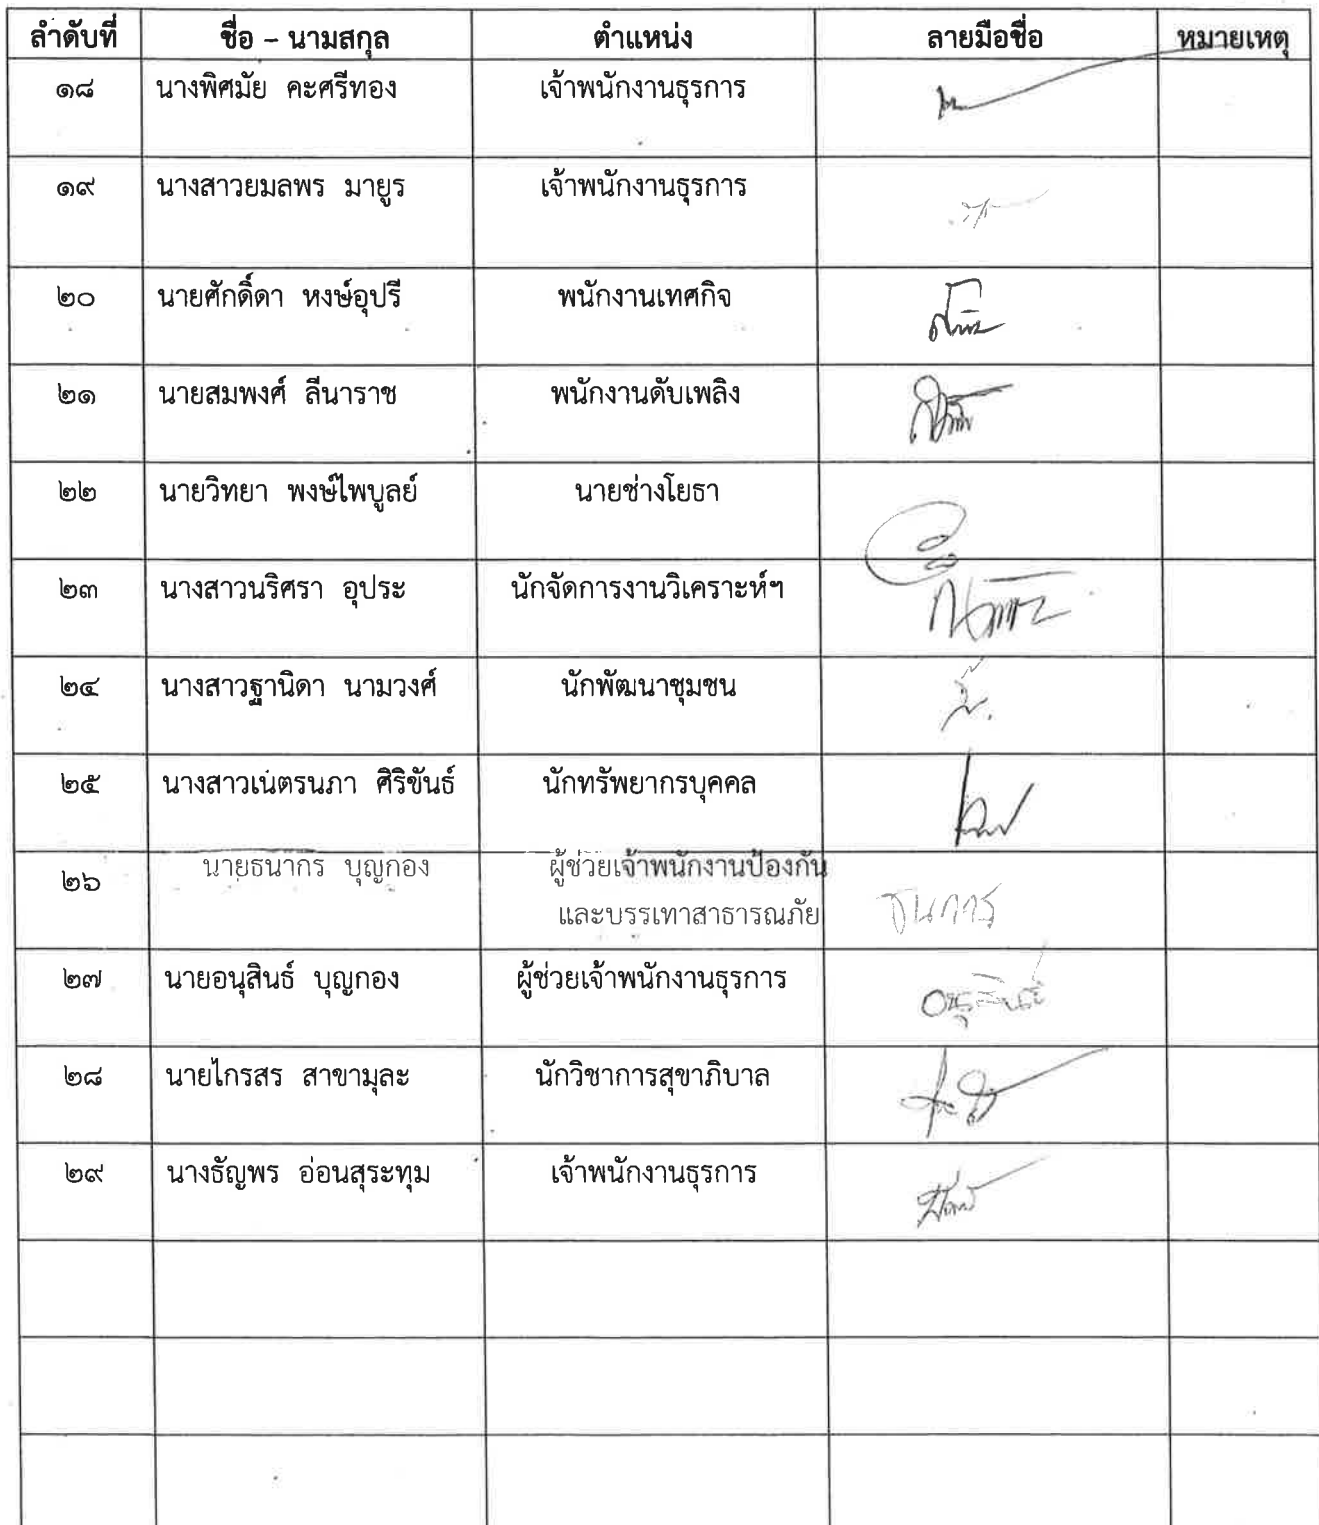 ลำดับที่ ชื่อ – นามสกุล ตำแหน่ง ลายมือชื่อ หมายเหตุ
๑๘ นางพิศมัย คะศรีทอง เจ้าพนักงานธุรการ
๑๙ นางสาวยมลพร มายูร เจ้าพนักงานธุรการ
๒๐ นายศักดิ์ดา หงษ์อุปรี พนักงานเทศกิจ
๒๑ นายสมพงศ์ ลีนาราช พนักงานดับเพลิง
๒๒ นายวิทยา พงษ์ไพบูลย์ นายช่างโยธา
๒๓ นางสาวนริศรา อุประ นักจัดการงานวิเคราะห์ฯ
๒๔ นางสาวฐานิดา นามวงศ์ นักพัฒนาชุมชน
๒๕ นางสาวเนตรนภา ศิริขันธ์ นักทรัพยากรบุคคล
๒๖ นายธนากร บุญกอง ผู้ช่วยเจ้าพนักงานป้องกัน
และบรรเทาสาธารณภัย ธนากร
๒๗ นายอนุสินธ์ บุญกอง ผู้ช่วยเจ้าพนักงานธุรการ อนุสินธ์
๒๘ นายไกรสร สาขามุละ นักวิชาการสุขาภิบาล
๒๙ นางธัญพร อ่อนสุระทุม เจ้าพนักงานธุรการ